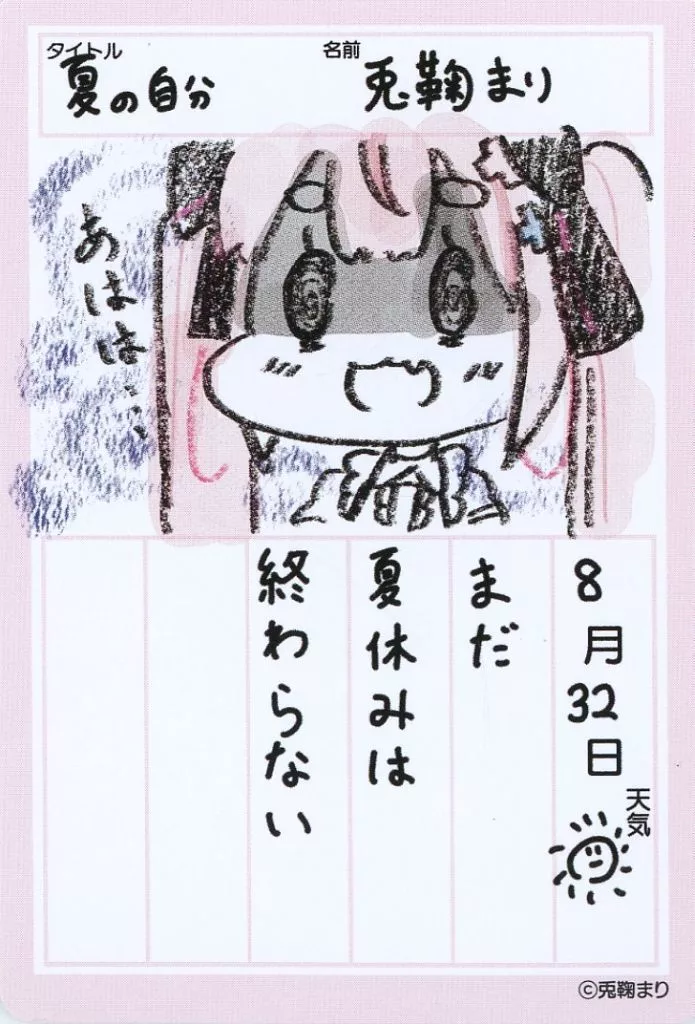 タイトル
夏の自分
名前
兎鞠まり
あはは…
8月32日
天気
まだ
夏休みは
終わらない
©兎鞠まり